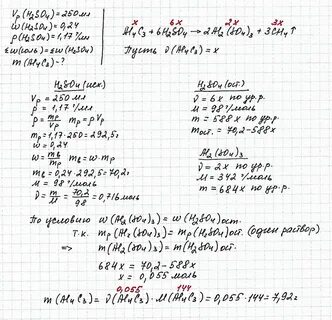 Vp(H₂SO₄)=250мл
w(H₂SO₄)=0,24
ρ(H₂SO₄)=1,17 г/мл
w(соль)=w(H₂SO₄)
m(Al₄C₃)-?
x 6x 2x 3x
Al₄C₃+6H₂SO₄→2Al₂(SO₄)₃+3CH₄↑
Пусть ν(Al₄C₃)=x
H₂SO₄(исх.)
Vp=250 мл
ρ=1,17 г/мл
ρ=mp/Vp mp=ρVp
mp=1,17·250=292,5г
w=0,24
w=mв/mp mв=w·mp
mв=0,24·292,5=70,2г
M=98 г/моль
ν=m/M=70,2/98=0,716моль
H₂SO₄(ост.)
ν=6x по ур.р.
M=98 г/моль
m=588x по ур.р.
mост.=70,2-588x
Al₂(SO₄)₃
ν=2x по ур.р.
M=342 г/моль
m=684x по ур.р.
По условию w(Al₂(SO₄)₃)=w(H₂SO₄)ост.
т.к. mp(Al₂(SO₄)₃)=mp(H₂SO₄)ост. (один раствор)
⇒ m(Al₂(SO₄)₃)=m(H₂SO₄)ост.
684x=70,2-588x
x=0,055моль
0,055 144
m(Al₄C₃)=ν(Al₄C₃)·M(Al₄C₃)=0,055·144=7,92г